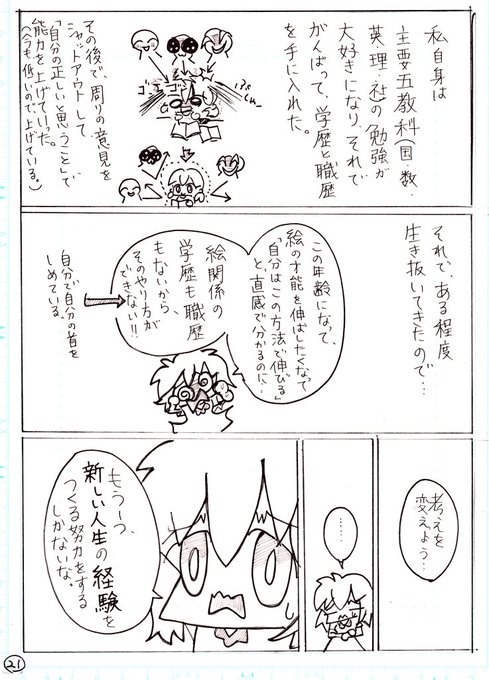 私自身は
主要五教科(国数
英理社)の勉強が
大好きになり、それで
がんばって、学歴と職歴
を手に入れた。
その後で、周りの意見を
シャットアウトして
「自分の正しいと思うこと」で
能力を上げていった。
(今も低いので、上げている。)
それで、ある程度
生き抜いてきたので…
この年齢になって、
絵の才能を伸ばしたくなって
「自分はこの方法で伸びる」
と、直感で分かるのに…
絵関係の
学歴も職歴
もないから、
そのやり方が
できない!!
自分で自分の首を
しめている。
考えを
変えよう…
……
もう一つ、
新しい人生の経験を
つくる努力をする
しかないな。
21